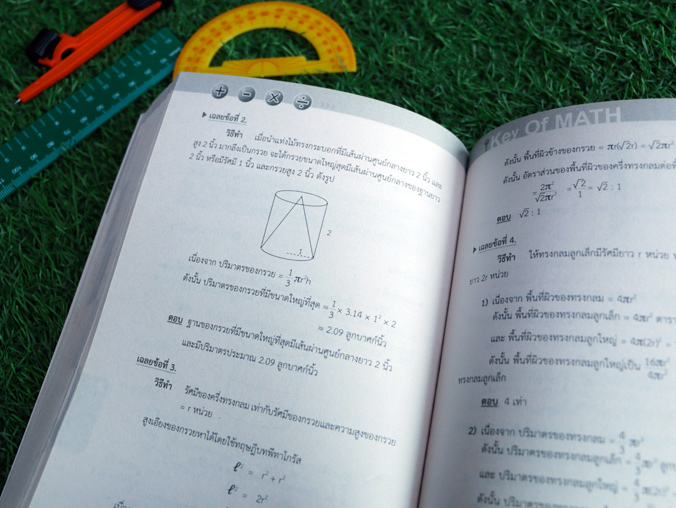 + − × ÷
▶ เฉลยข้อที่ 2.
วิธีทำ เมื่อนำแท่งไม้ทรงกระบอกที่มีเส้นผ่านศูนย์กลางยาว 2 นิ้ว และ
สูง 2 นิ้ว มากลึงเป็นกรวย จะได้กรวยขนาดใหญ่สุดมีเส้นผ่านศูนย์กลางของฐานยาว
2 นิ้ว หรือมีรัศมี 1 นิ้ว และกรวยสูง 2 นิ้ว ดังรูป
2
1
เนื่องจาก ปริมาตรของกรวย = 1/3 πr²h
ดังนั้น ปริมาตรของกรวยที่มีขนาดใหญ่ที่สุด = 1/3 × 3.14 × 1² × 2
= 2.09 ลูกบาศก์นิ้ว
ตอบ ฐานของกรวยที่มีขนาดใหญ่ที่สุดมีเส้นผ่านศูนย์กลางยาว 2 นิ้ว
และมีปริมาตรประมาณ 2.09 ลูกบาศก์นิ้ว
เฉลยข้อที่ 3.
วิธีทำ รัศมีของครึ่งทรงกลม เท่ากับรัศมีของกรวยและความสูงของกรวย
= r หน่วย
สูงเอียงของกรวยหาได้โดยใช้ทฤษฎีบทพีทาโกรัส
ℓ² = r² + r²
ℓ² = 2r²
Key Of MATH
ดังนั้น พื้นที่ผิวข้างของกรวย = πr(√2r) = √2πr²
ดังนั้น อัตราส่วนของพื้นที่ผิวของครึ่งทรงกลมต่อพื้
= 2πr²/√2πr² = √2/1 = √2 : 1
ตอบ √2 : 1
▶ เฉลยข้อที่ 4.
วิธีทำ ให้ทรงกลมลูกเล็กมีรัศมียาว r หน่วย
ยาว 2r หน่วย
1) เนื่องจาก พื้นที่ผิวของทรงกลม = 4πr²
ดังนั้น พื้นที่ผิวของทรงกลมลูกเล็ก = 4πr² ตารา
และ พื้นที่ผิวของทรงกลมลูกใหญ่ = 4π(2r)² =
ดังนั้น พื้นที่ผิวของทรงกลมลูกใหญ่เป็น 16πr²/4πr²
ทรงกลมลูกเล็ก
ตอบ 4 เท่า
2) เนื่องจาก ปริมาตรของทรงกลม = 4/3 πr³
ดังนั้น ปริมาตรของทรงกลมลูกเล็ก = 4/3 πr³ ลูก
และ ปริมาตรของทรงกลมลูกใหญ่ = 4/3
ดังนั้น ปริมาตรของทรงกลม